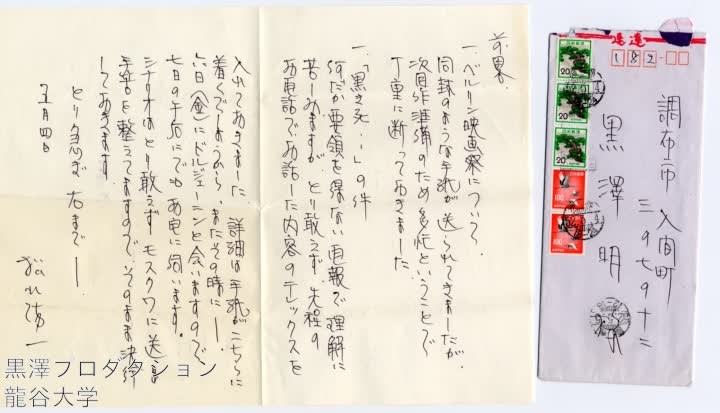 前略
一、ベルリン映画祭について。
同封のような手紙が送られてきましたが、
次回作準備のため多忙ということで
丁重に断っておきました
一、「黒き死‥」の件
何だか要領を得ない電報で理解に
苦しみますが、とり敢えず、先程の
お電話でお話した内容のテレックスを
入れておきました 詳細は手紙がこちらに
着くでしょうから、またその時に―。
六日(金)にドルジェーニンと会いますので、
七日の午后にでもお宅に伺います。
シナリオはとり敢えずモスクワに送る
手筈を整えてますので、そのまま
しておきます
とり急ぎ 右まで―
五月四日
松江陽一
速達
182
調布市 入間町
三ノ七ノ十二
黒澤明
日本郵便
20
日本郵便
20
日本郵便
20
100
100
黒澤プロダクション
龍谷大学